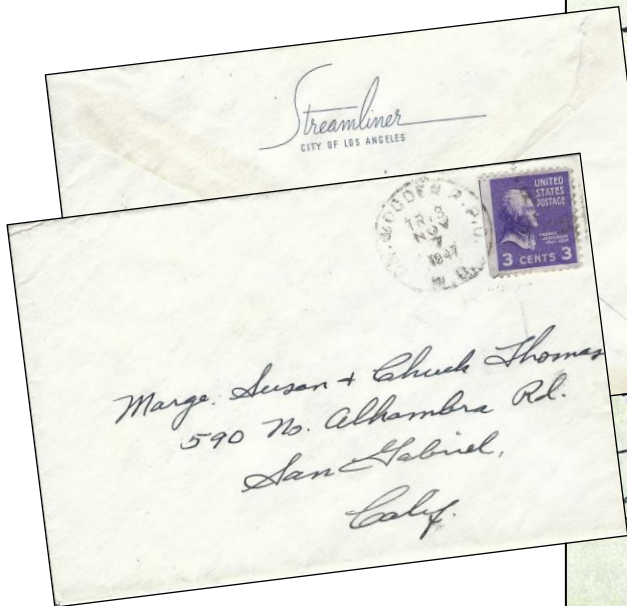 Streamliner
CITY OF LOS ANGELES
& OGDEN R.P.O.
TR.3
NOV
7
1947
UNITED
STATES
POSTAGE
THOMAS
JEFFERSON
3 CENTS 3
Marge. Susan + Chuck Thomas
590 No. Alhambra Rd.
San Gabriel,
Calif.